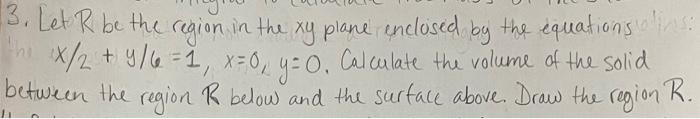 3. Let R be the region in the xy plane enclosed by the equations
x/2 + y/6 = 1, x=0, y=0. Calculate the volume of the solid
between the region R below and the surface above. Draw the region R.